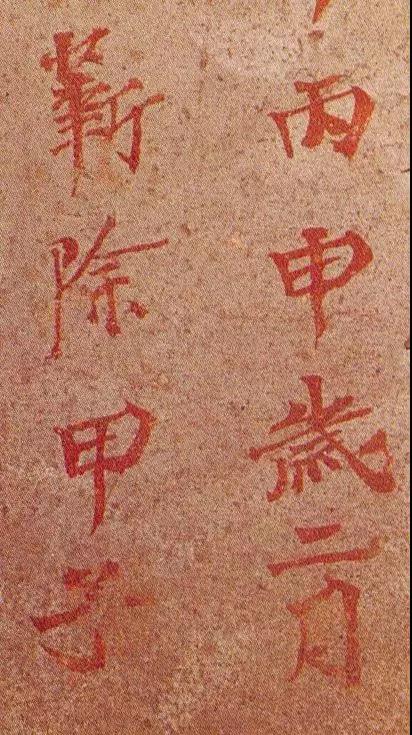 丙申歲二月
新除甲子